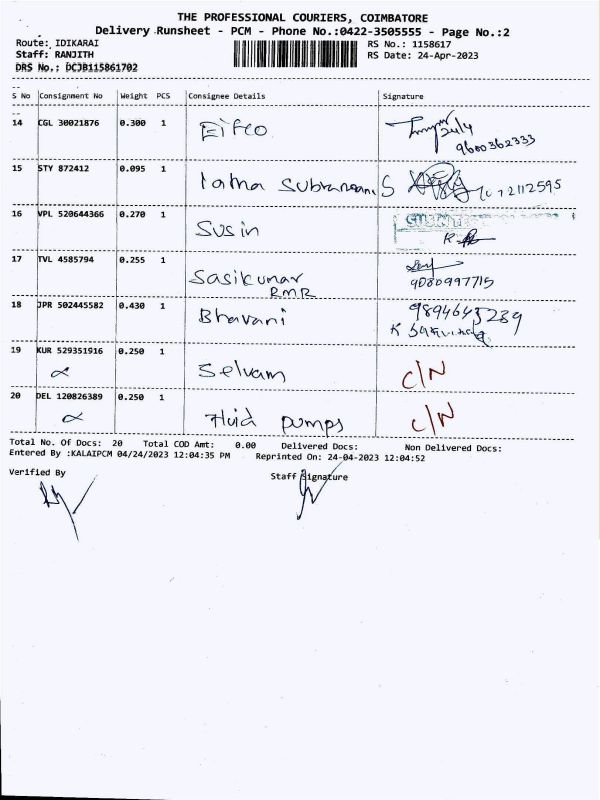 THE PROFESSIONAL COURIERS, COIMBATORE
Delivery Runsheet - PCM - Phone No.:0422-3505555 - Page No.:2
Route: IDIKARAI RS No.: 1158617
Staff: RANJITH RS Date: 24-Apr-2023
DRS No.: DCJB115861702
S No Consignment No Weight PCS Consignee Details Signature
14 CGL 30021876 0.300 1 Eifco 24/4
9600362333
15 STY 872412 0.095 1 S
16 VPL 520644366 0.270 1 Susin
17 TVL 4585794 0.255 1 Sasikumar
RMR 9080997715
18 JPR 502445582 0.430 1 Bhavani 9894645239
K
19 KUR 529351916 0.250 1 Selvam C/N
20 DEL 120826389 0.250 1 Fluid pumps C/N
Total No. Of Docs: 20 Total COD Amt: 0.00 Delivered Docs: Non Delivered Docs:
Entered By :KALAIPCM 04/24/2023 12:04:35 PM Reprinted On: 24-04-2023 12:04:52
Verified By Staff Signature